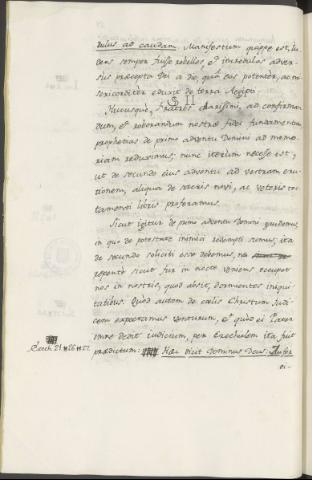 dulus ad caudam. Manifestum quippe est, Iu
deos semper fuisse rebelles, et incredulos adver-
sus præcepta Dei a die, qua eos potenter, ac mi
sericorditer eduxit de terra Ægipti.
§. II.
Hucusque, Fratres Karissimi, ad confirman
dum, et roborandum nostræ fidei fundamentum
prophetias de primo adventu Domini ad memo-
riam reduximus; nunc iterum necesse est,
ut de secundo eius adventu ad vestram eru-
ditionem, aliqua de sacris novi, ac veteris tes-
tamenti libris proferamus.
Sicut igitur de primo adventu Domini gaudemus,
in quo de potestate inimici redempti sumus, ita
de secundo soliciti esse debemus, ne
repente sicut fur in nocte veniens occupet
nos in nostris, quod absit, dormientes iniqui-
tatibus. Quod autem de cœlis Christum Judi
cem expectamus venturum, et quod ei Pater
omne dedit iudicium, per Ezechielem ita fuit
prædictum: Hæc dicit Dominus Deus: Aufer
Ezech. 21
ci-